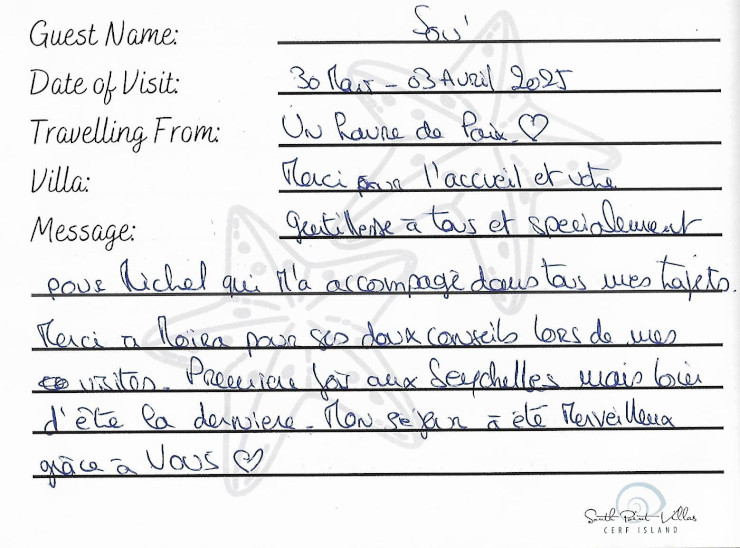 Guest Name: Sou'
Date of Visit: 30 Mars - 03 Avril 2025
Travelling From: Un havre de Paix ♡
Villa: Merci pour l'accueil et votre
Message: gentillesse à tous et specialement
pour Michel qui M'a accompagé dans tous mes trajets.
Merci à Moira pour ses doux conseils lors de mes
visites. Premiere fois aux Seychelles mais loin
d'être la derniere. Mon séjour à été Merveilleux
grâce à Vous ♡
South Point Villas
CERF ISLAND